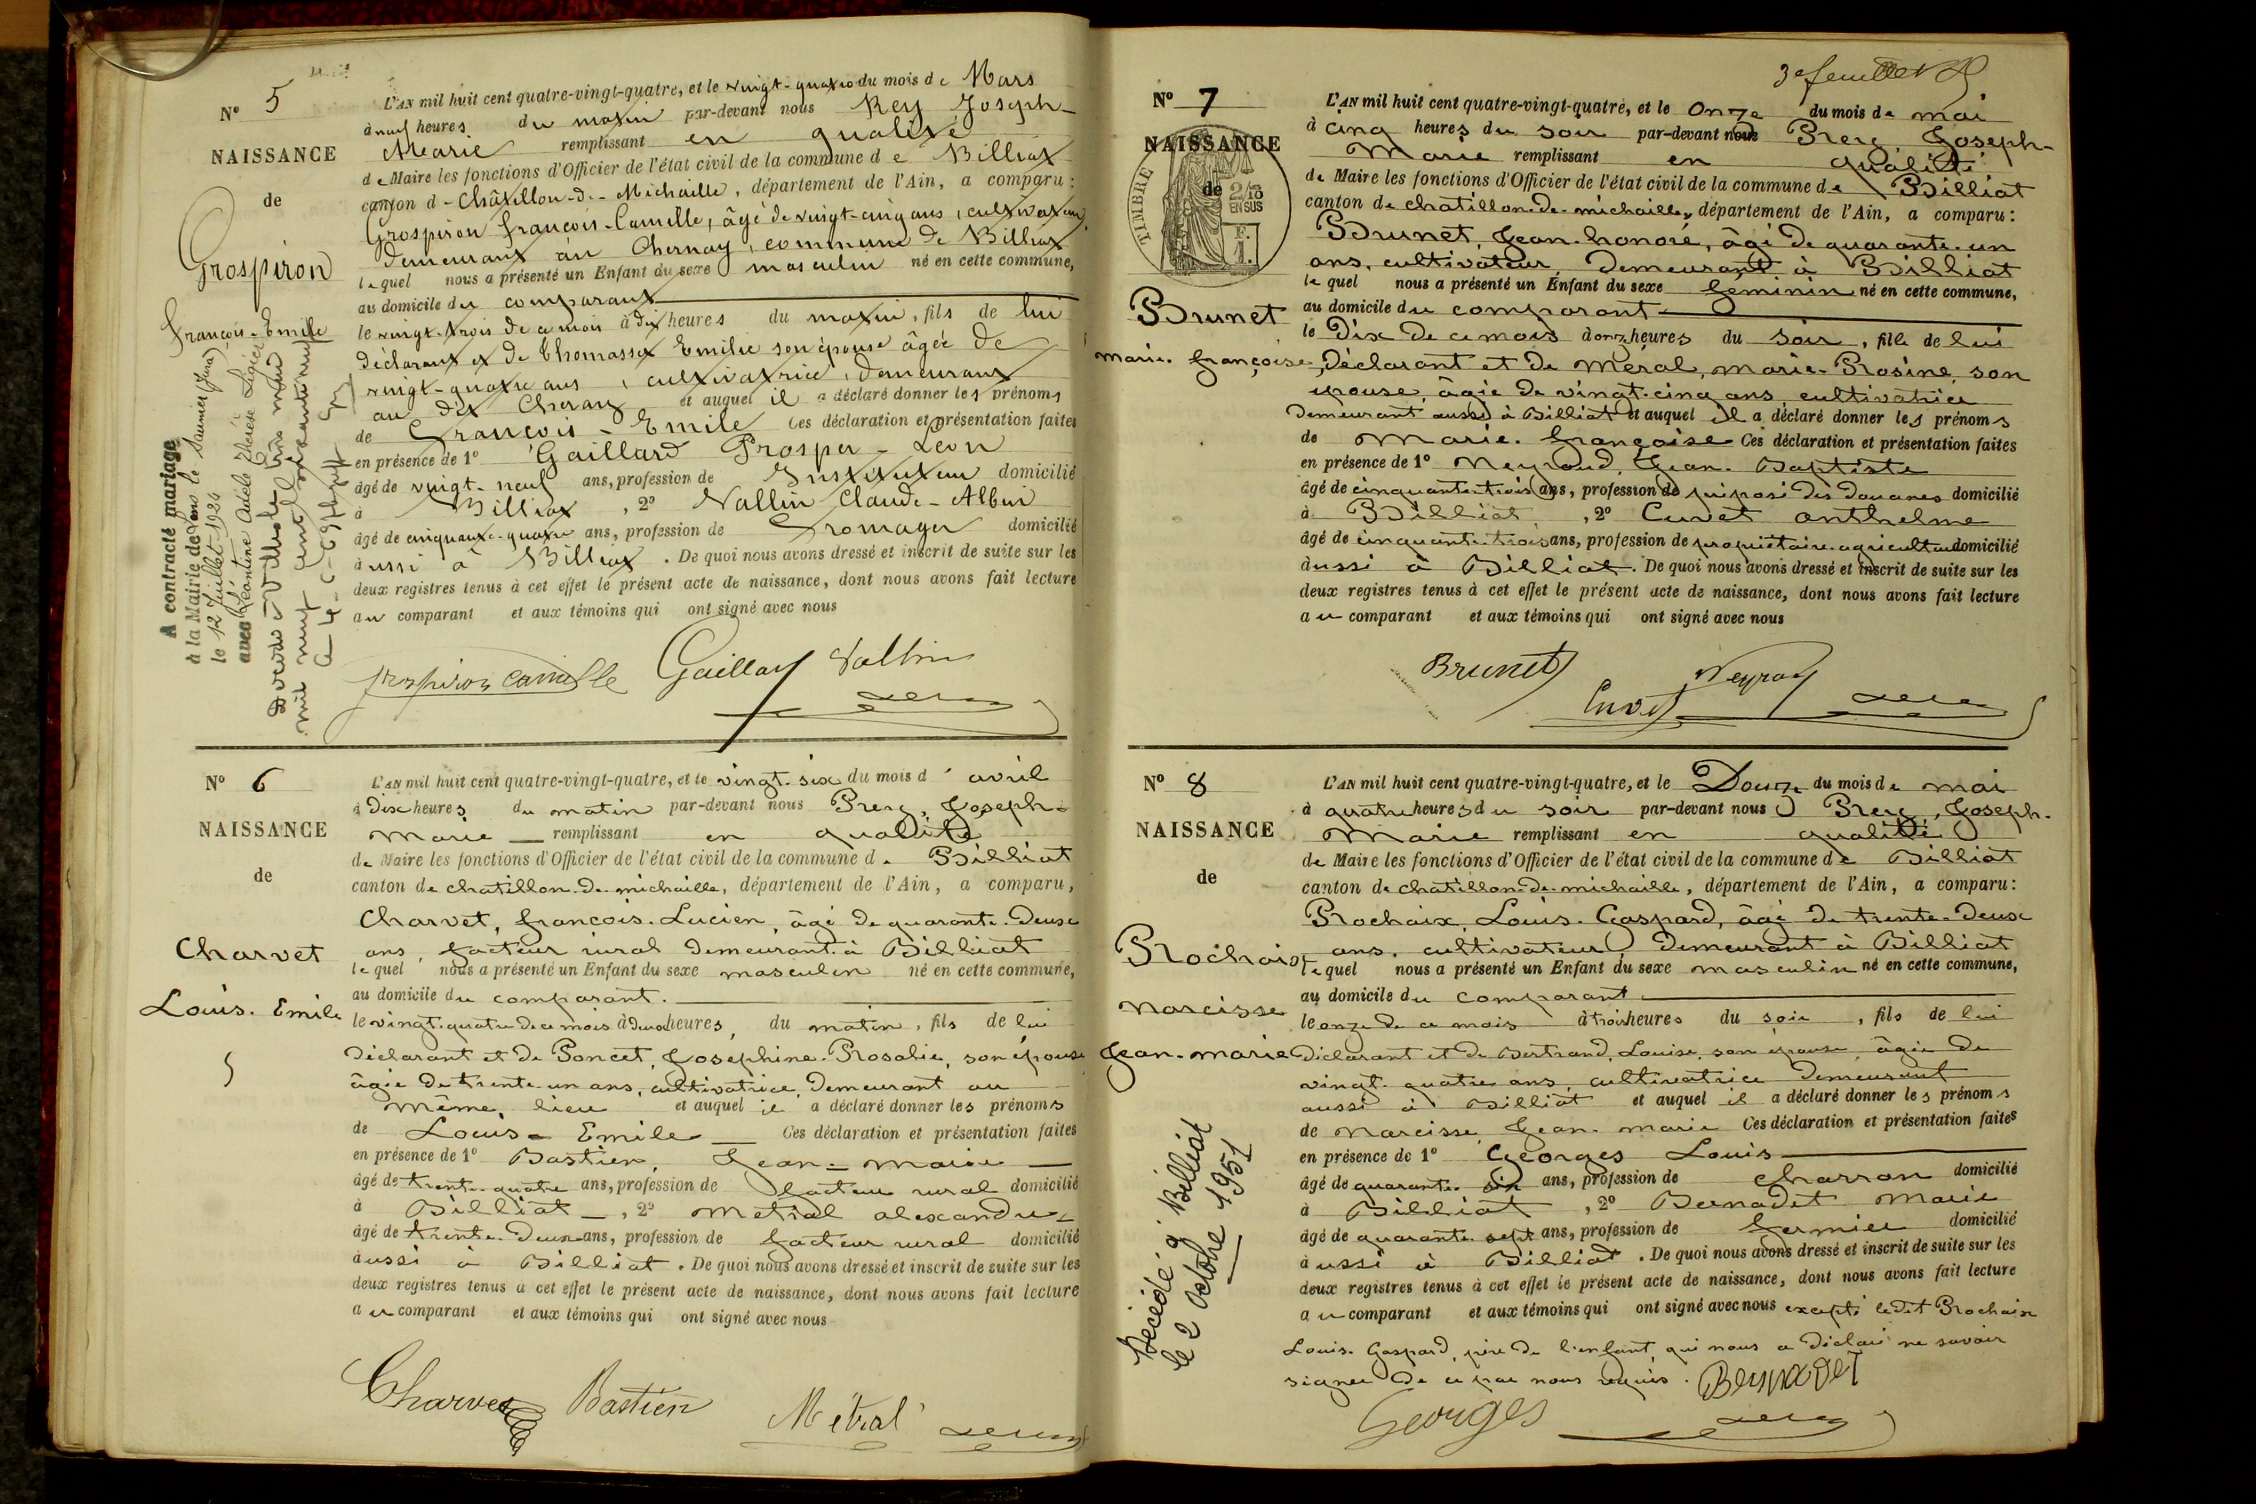 N° 5
NAISSANCE
de
Grospiron
François-Emile
A contracté mariage
à la Mairie de Lons le Saunier (Jura)
le 12 Juillet 1924
avec Léontine Adèle Thérèse
L'AN mil huit cent quatre-vingt-quatre, et le vingt-quatre du mois de Mars
à neuf heures du matin par-devant nous Rey Joseph-
Marie remplissant en qualité
de Maire les fonctions d'Officier de l'état civil de la commune de Billiat
canton d-Châtillon-de-Michaille, département de l'Ain, a comparu:
Grospiron françois-Camille, âgé de vingt-cinq ans, cultivateur,
demeurant au Chernay, commune de Billiat
lequel nous a présenté un Enfant du sexe masculin né en cette commune,
au domicile du comparant
le vingt-trois de ce mois à dix heures du matin, fils de lui
déclarant et de Thomasset Emilie son épouse âgée de
vingt-quatre ans, cultivatrice, demeurant
au dit Chernay et auquel il a déclaré donner les prénoms
de François-Emile Ces déclaration et présentation faites
en présence de 1° Gaillard Prosper-Léon
âgé de vingt-neuf ans, profession de Instituteur domicilié
à Billiat, 2° Vallin Claude-Albin
âgé de cinquante-quatre ans, profession de Fromager domicilié
aussi à Billiat. De quoi nous avons dressé et inscrit de suite sur les
deux registres tenus à cet effet le présent acte de naissance, dont nous avons fait lecture
au comparant et aux témoins qui ont signé avec nous
grospiron camille Gaillard Vallin
N° 6
NAISSANCE
de
Charvet
Louis. Emile
L'AN mil huit cent quatre-vingt-quatre, et le vingt-six du mois d'avril
à Dix heures du matin par-devant nous Rey, Joseph-
Marie remplissant en qualité
de Maire les fonctions d'Officier de l'état civil de la commune de Billiat
canton de chatillon-de-michaille, département de l'Ain, a comparu,
Charvet, françois-Lucien, âgé de quarante-Deux
ans, facteur rural Demeurant à Billiat
lequel nous a présenté un Enfant du sexe masculin né en cette commune,
au domicile du comparant.
le vingt-quatre de ce mois à deux heures, du matin, fils de lui
déclarant et de Poncet, Joséphine-Rosalie, son épouse
âgée de trente-un ans, cultivatrice, Demeurant au
même, lieu et auquel il a déclaré donner les prénoms
de Louis-Emile Ces déclaration et présentation faites
en présence de 1° Bastien, Jean-Marie
âgé de trente-quatre ans, profession de facteur rural domicilié
à Billiat, 2° Métral alexandre
âgé de trente-Deux ans, profession de facteur rural domicilié
aussi à Billiat. De quoi nous avons dressé et inscrit de suite sur les
deux registres tenus à cet effet le présent acte de naissance, dont nous avons fait lecture
au comparant et aux témoins qui ont signé avec nous
Charvet Bastien Métral
3e feuillet
N° 7
NAISSANCE
de
TIMBRE
2/10
EN SUS
Brunet
Marie. françoise
L'AN mil huit cent quatre-vingt-quatre, et le Onze du mois de mai
à cinq heures du soir par-devant nous Rey, Joseph-
Marie remplissant en qualité
de Maire les fonctions d'Officier de l'état civil de la commune de Billiat
canton de chatillon-de-michaille, département de l'Ain, a comparu:
Brunet, Jean-honoré, âgé de quarante-un
ans, cultivateur, Demeurant à Billiat
lequel nous a présenté un Enfant du sexe féminin né en cette commune,
au domicile du comparant
le Dix de ce mois à onze heures du soir, fille de lui
déclarant et de Méral, Marie-Rosine, son
épouse, âgée de vingt-cinq ans, cultivatrice
Demeurant aussi à Billiat et auquel il a déclaré donner les prénoms
de Marie-françoise Ces déclaration et présentation faites
en présence de 1° Neyroud, Jean-Baptiste
âgé de cinquante-trois ans, profession de préposé des douanes domicilié
à Billiat, 2° Cuvet anthelme
âgé de cinquante-trois ans, profession de propriétaire-agriculteur domicilié
aussi à Billiat. De quoi nous avons dressé et inscrit de suite sur les
deux registres tenus à cet effet le présent acte de naissance, dont nous avons fait lecture
au comparant et aux témoins qui ont signé avec nous
Brunet Neyroud
Cuvet
N° 8
NAISSANCE
de
Rochaix
Narcisse
Jean-Marie
Décédé à Billiat
le 2 Octobre 1951
L'AN mil huit cent quatre-vingt-quatre, et le Douze du mois de mai
à quatre heures du soir par-devant nous Rey, Joseph-
Marie remplissant en qualité
de Maire les fonctions d'Officier de l'état civil de la commune de Billiat
canton de chatillon-de-michaille, département de l'Ain, a comparu:
Rochaix, Louis-Gaspard, âgé de trente-Deux
ans, cultivateur, Demeurant à Billiat
lequel nous a présenté un Enfant du sexe masculin né en cette commune,
au domicile du comparant
le onze de ce mois à trois heures du soir, fils de lui
déclarant et de Bertrand, Louise, son épouse, âgée de
vingt-quatre ans, cultivatrice Demeurant
aussi à Billiat et auquel il a déclaré donner les prénoms
de Narcisse Jean-Marie Ces déclaration et présentation faites
en présence de 1° Georges Louis
âgé de quarante-six ans, profession de charron domicilié
à Billiat, 2° Bernadet Marie
âgé de quarante-sept ans, profession de fermier domicilié
aussi à Billiat. De quoi nous avons dressé et inscrit de suite sur les
deux registres tenus à cet effet le présent acte de naissance, dont nous avons fait lecture
au comparant et aux témoins qui ont signé avec nous excepté ledit Rochaix
Louis-Gaspard, père de l'enfant, qui nous a déclaré ne savoir
signer de ce par nous requis.
Georges